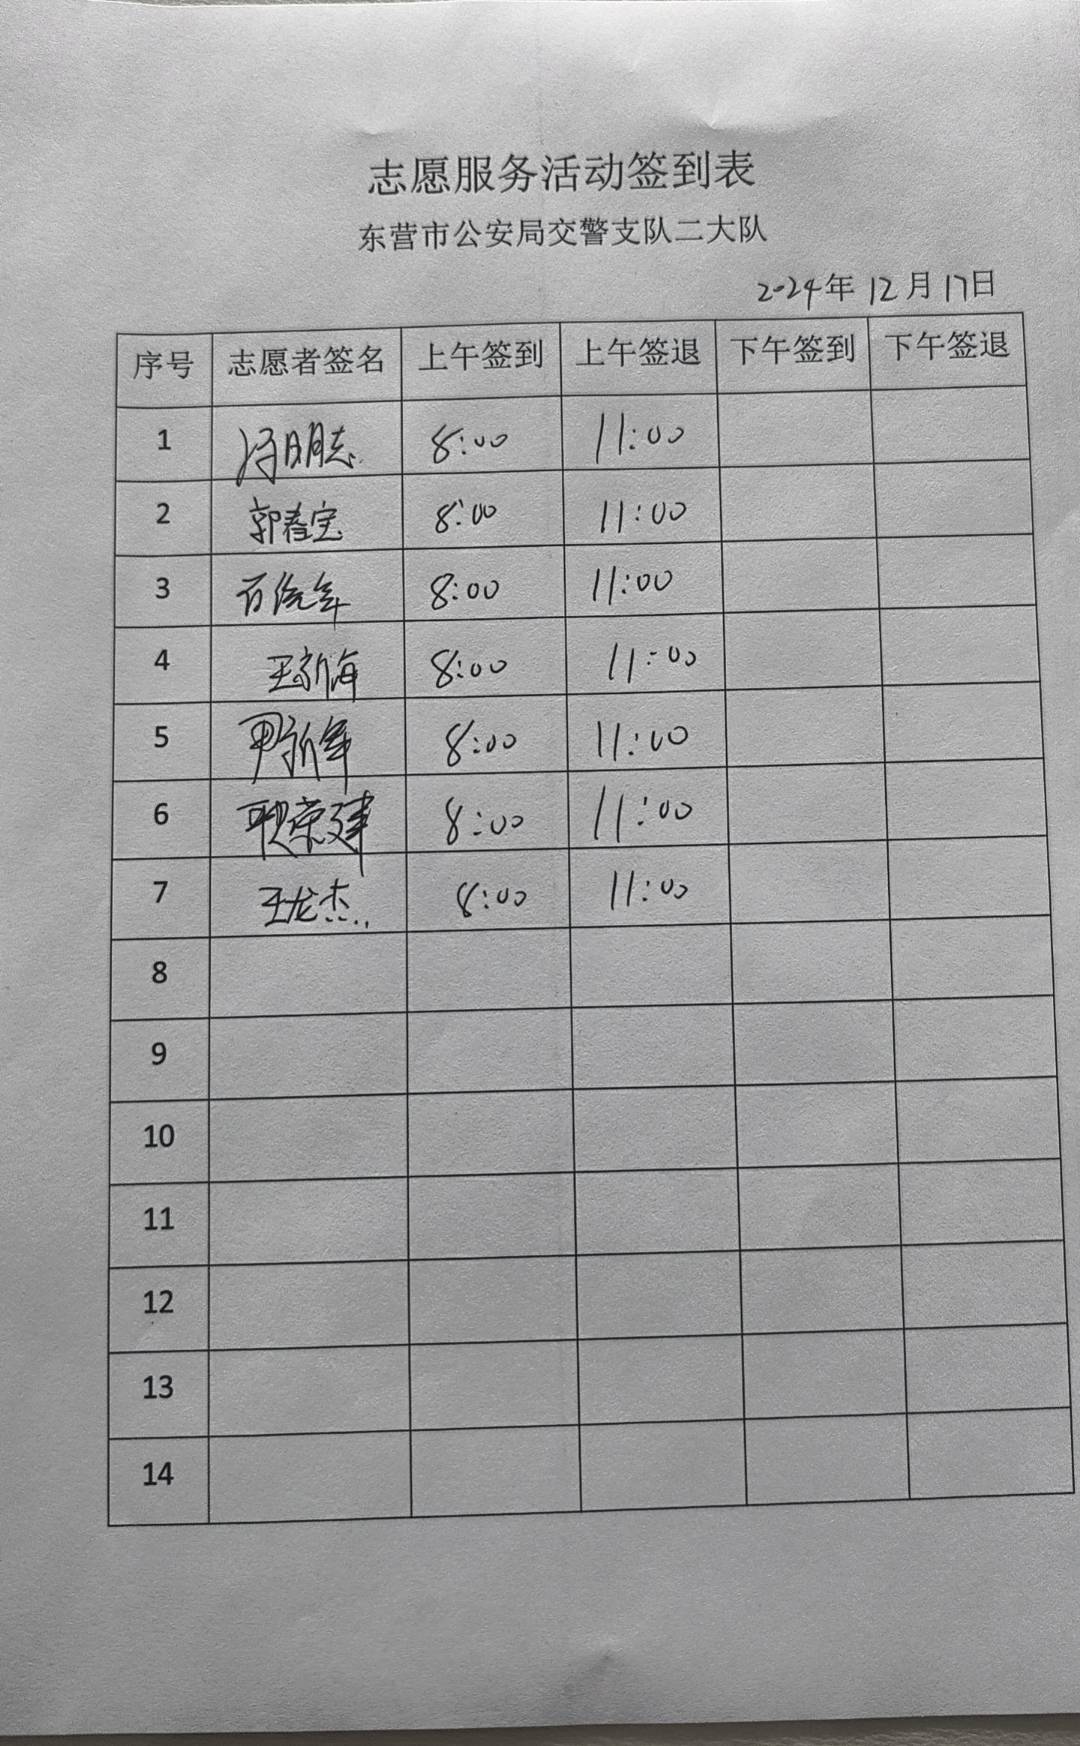 志愿服务活动签到表
东营市公安局交警支队二大队
2024年12月17日
序号 志愿者签名 上午签到 上午签退 下午签到 下午签退
1 冯明志 8:00 11:00
2 郭春宝 8:00 11:00
3 8:00 11:00
4 王新海 8:00 11:00
5 尹新军 8:00 11:00
6 耿荣建 8:00 11:00
7 王龙杰 8:00 11:00
8
9
10
11
12
13
14